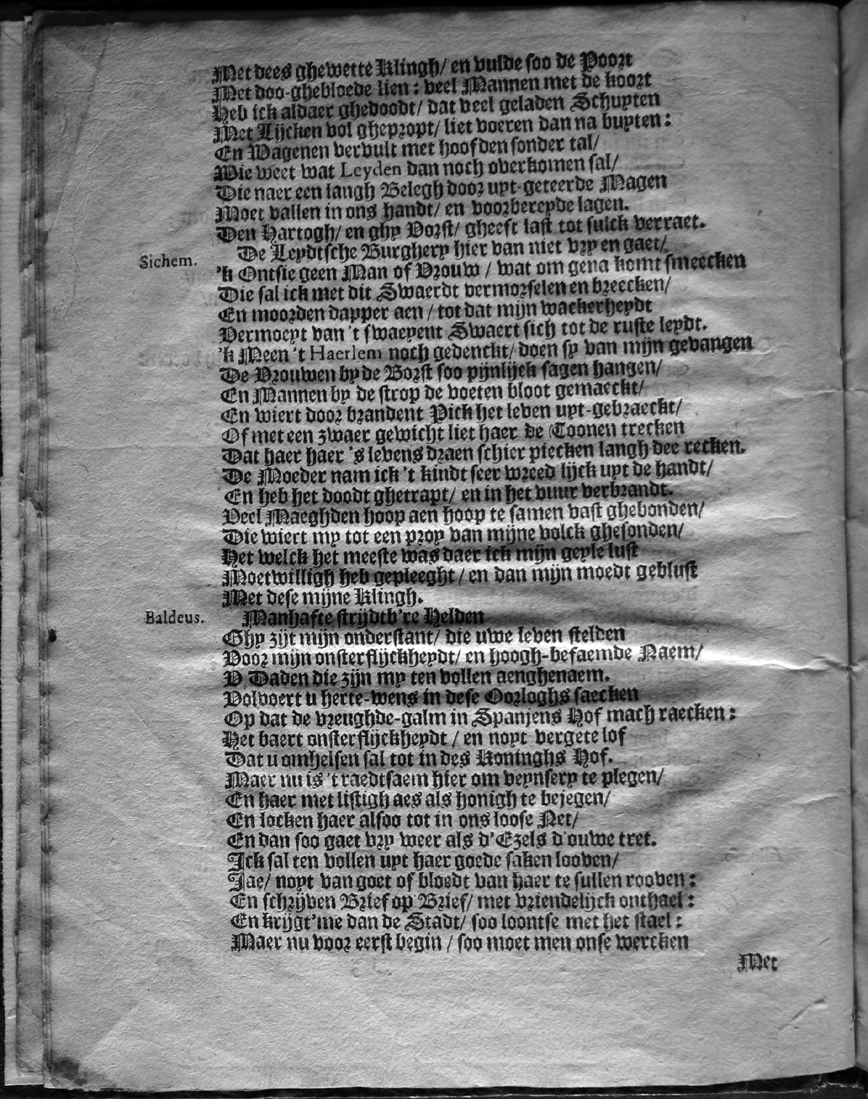 Met dees ghewette Klingh/ en vulde soo de Poort
Met doo-ghebloede lien: veel Mannen met de koort
Heb ick aldaer ghedoodt/ dat veel geladen Schuyten
Met Lijcken vol ghepropt/ liet voeren dan na buyten:
En Wagenen vervult met hoofden sonder tal/
Wie weet wat Leyden dan noch overkomen sal/
Die naer een langh Belegh door uyt-geteerde Magen
Moet vallen in ons handt/ en voorbereyde lagen.
Den Hartogh/ en ghy Vorst/ gheeft last tot sulck verraet.
De Leydtsche Burghery hier van niet vry en gaet/
Sichem. 'k Ontsie geen Man of Vrouw/ wat om gena komt smeecken
Die sal ick met dit Swaerdt vermorselen en breecken/
En moorden dapper aen/ tot dat mijn wackerheydt
Vermoeyt van 't swaeyent Swaert sich tot de ruste leydt.
'k Meen 't Haerlem noch gedenckt/ doen sy van mijn gevangen
De Vrouwen by de Borst soo pijnlijck sagen hangen/
En Mannen by de strop de voeten bloot gemaeckt/
En wiert door brandent Pick het leven uyt-gebraeckt/
Of met een zwaer gewicht liet haer de Toonen trecken
Dat haer haer 's levens draen schier piecken langh dee recken.
De Moeder nam ick 't kindt seer wreed lijck uyt de handt/
En heb het doodt ghetrapt/ en in het vuur verbrandt.
Veel Maeghden hoop aen hoop te samen vast ghebonden/
Die wiert my tot een proy van mijne volck ghesonden/
Het welck het meeste was daer ick mijn geyle lust
Moetwilligh heb gepleeght/ en dan mijn moedt geblust
Met dese mijne Klingh.
Baldeus. Manhafte strijdtb're Helden
Ghy zijt mijn onderstant/ die uwe leven stelden
Voor mijn onsterflijckheydt/ en hoogh-befaemde Naem/
V Daden die zijn my ten vollen aenghenaem.
Volvoert u herte-wens in dese Oorloghs saecken
Op dat de vreughde-galm in Spanjens Hof mach raecken:
Het baert onsterflijckheydt/ en noyt vergete lof
Dat u omhelsen sal tot in des Koninghs Hof.
Maer nu is 't raedtsaem hier om veynsery te plegen/
En haer met listigh aes als honigh te bejegen/
En locken haer alsoo tot in ons loose Net/
En dan soo gaet vry weer als d'Ezels d'ouwe tret.
Ick sal ten vollen uyt haer goede saken looven/
Jae/ noyt van goet of bloedt van haer te sullen rooven:
En schrijven Brief op Brief/ met vriendelijck onthael:
En krijgt'me dan de Stadt/ soo loontse met het stael:
Maer nu voor eerst begin/ soo moet men onse wercken
Met